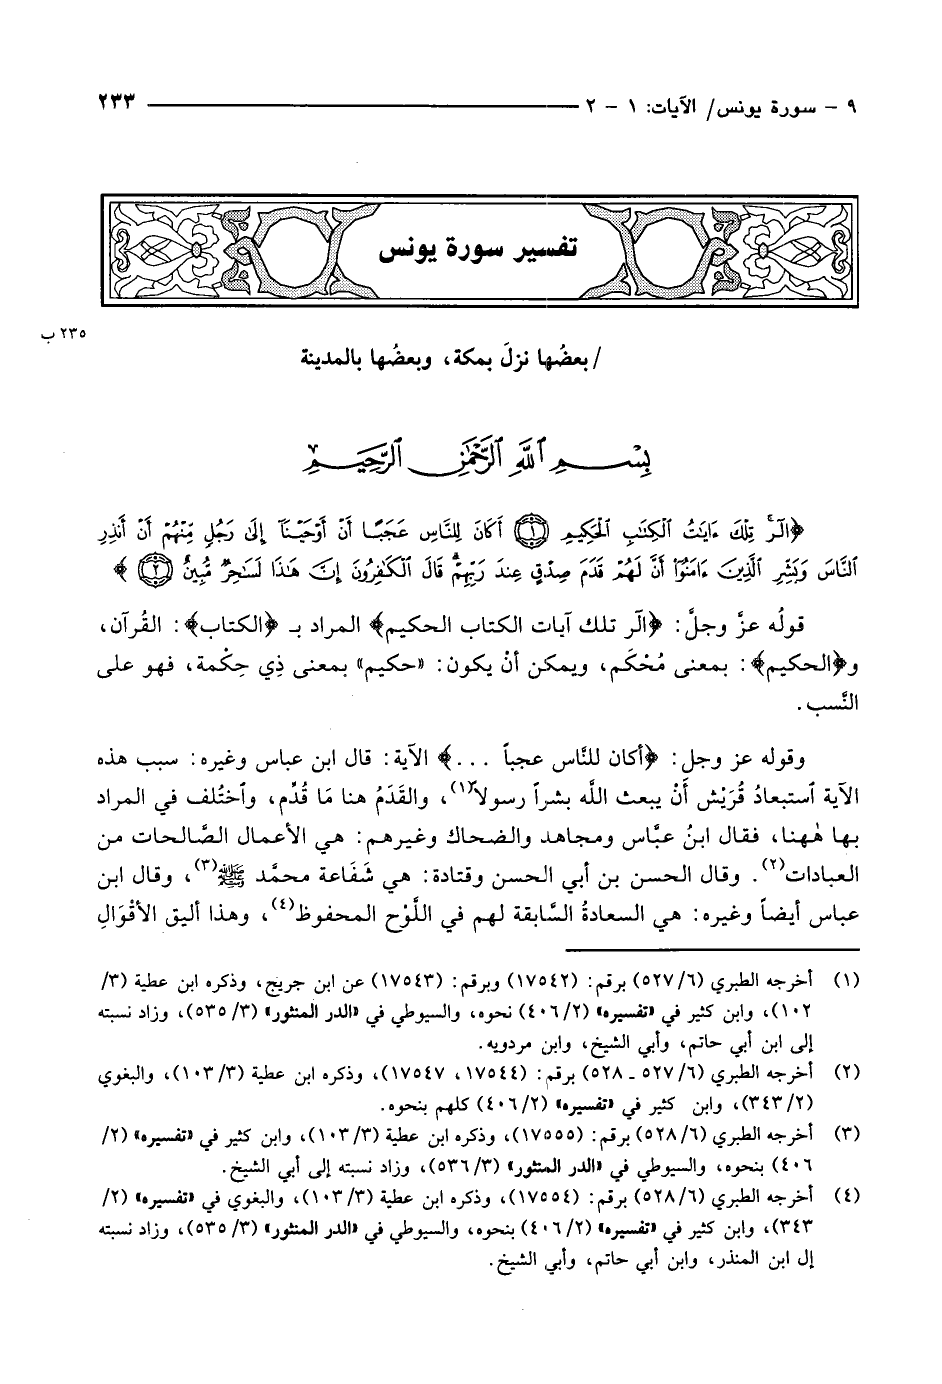 ٩ - سورة يونس/ الآيات: ١ - ٢ ٢٣٣
تفسير سورة يونس
٢٣٥ ب
/ بعضُها نزلَ بمكة، وبعضُها بالمدينة
بِسْمِ ٱللَّهِ ٱلرَّحْمَٰنِ ٱلرَّحِيمِ
﴿الٓرۚ تِلْكَ ءَايَٰتُ ٱلْكِتَٰبِ ٱلْحَكِيمِ ۝١ أَكَانَ لِلنَّاسِ عَجَبًا أَنْ أَوْحَيْنَآ إِلَىٰ رَجُلٍ مِّنْهُمْ أَنْ أَنذِرِ
ٱلنَّاسَ وَبَشِّرِ ٱلَّذِينَ ءَامَنُوٓا۟ أَنَّ لَهُمْ قَدَمَ صِدْقٍ عِندَ رَبِّهِمْۗ قَالَ ٱلْكَٰفِرُونَ إِنَّ هَٰذَا لَسَٰحِرٌ مُّبِينٌ ۝٢﴾
قولُه عزَّ وجلَّ: ﴿الٓر تلك آيات الكتاب الحكيم﴾ المراد بـ ﴿الكتاب﴾: القُرآن،
و﴿الحكيم﴾: بمعنى مُحْكَم، ويمكن أنْ يكون: «حكيم» بمعنى ذِي حِكْمة، فهو على
النَّسب.
وقوله عز وجل: ﴿أكان للنَّاس عجباً ...﴾ الآية: قال ابن عباس وغيره: سبب هذه
الآية ٱستبعادُ قُرَيْش أَنْ يبعث اللَّه بشراً رسولاً(١)، والقَدَمُ هنا مَا قُدِّم، وٱختُلف في المراد
بها هٰهنا، فقال ابنُ عبَّاس ومجاهد والضحاك وغيرهم: هي الأعمال الصَّالحات من
العبادات(٢). وقال الحسن بن أبي الحسن وقتادة: هي شَفَاعة محمَّد ﷺ(٣)، وقال ابن
عباس أيضاً وغيره: هي السعادةُ السَّابقة لهم في اللَّوْح المحفوظ(٤)، وهذا أليق الأقْوَالِ
(١) أخرجه الطبري (٥٢٧/٦) برقم: (١٧٥٤٢) وبرقم: (١٧٥٤٣) عن ابن جريج، وذكره ابن عطية (٣/
١٠٢)، وابن كثير في «تفسيره» (٤٠٦/٢) نحوه، والسيوطي في «الدر المنثور» (٥٣٥/٣)، وزاد نسبته
إلى ابن أبي حاتم، وأبي الشيخ، وابن مردويه.
(٢) أخرجه الطبري (٥٢٧/٦ ـ ٥٢٨) برقم: (١٧٥٤٤، ١٧٥٤٧)، وذكره ابن عطية (١٠٣/٣)، والبغوي
(٣٤٣/٢)، وابن كثير في «تفسيره» (٤٠٦/٢) كلهم بنحوه.
(٣) أخرجه الطبري (٥٢٨/٦) برقم: (١٧٥٥٥)، وذكره ابن عطية (١٠٣/٣)، وابن كثير في «تفسيره» (٢/
٤٠٦) بنحوه، والسيوطي في «الدر المنثور» (٥٣٦/٣)، وزاد نسبته إلى أبي الشيخ.
(٤) أخرجه الطبري (٥٢٨/٦) برقم: (١٧٥٥٤)، وذكره ابن عطية (١٠٣/٣)، والبغوي في «تفسيره» (٢/
٣٤٣)، وابن كثير في «تفسيره» (٤٠٦/٢) بنحوه، والسيوطي في «الدر المنثور» (٥٣٥/٣)، وزاد نسبته
إل ابن المنذر، وابن أبي حاتم، وأبي الشيخ.